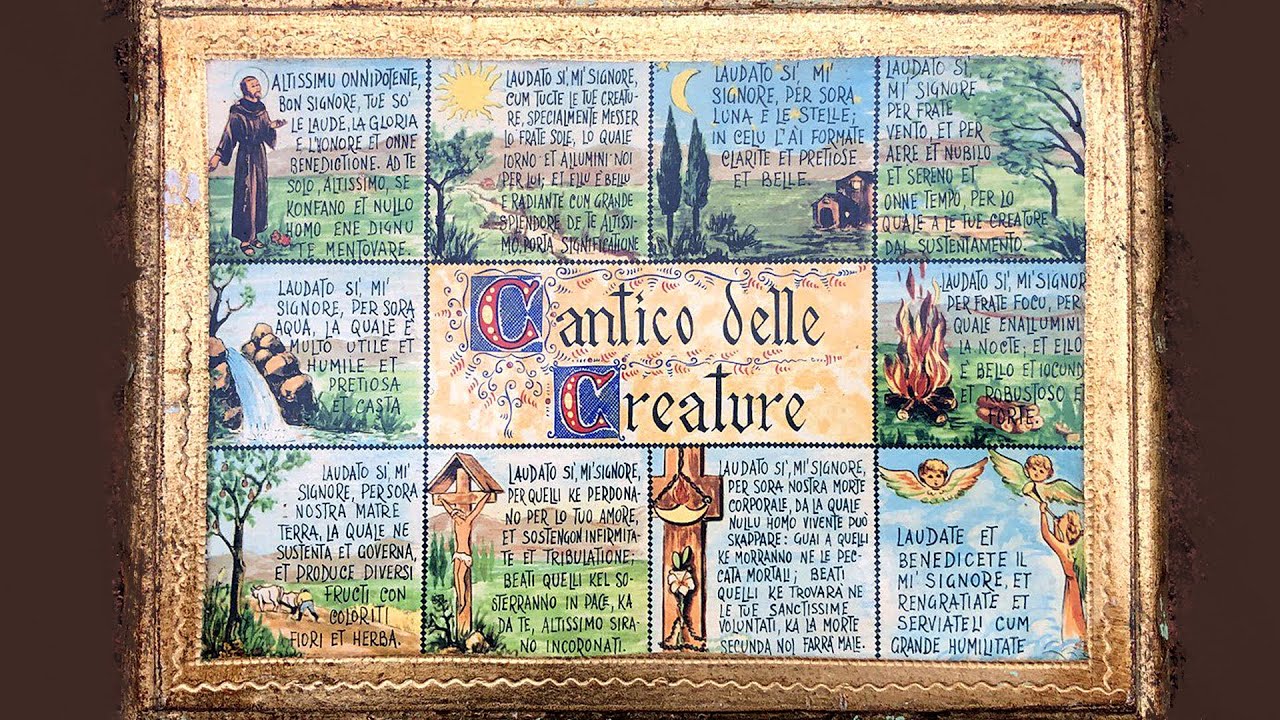 ALTISSIMU ONNIPOTENTE,
BON SIGNORE, TUE SO'
LE LAUDE, LA GLORIA
E L'HONORE ET ONNE
BENEDICTIONE. AD TE
SOLO, ALTISSIMO, SE
KONFANO ET NULLO
HOMO ENE DIGNU
TE MENTOVARE.
LAUDATO SI', MI' SIGNORE,
CUM TUCTE LE TUE CREATU-
RE, SPECIALMENTE MESSER
LO FRATE SOLE, LO QUALE
IORNO ET ALLUMINI NOI
PER LUI; ET ELLU È BELLU
E RADIANTE CUM GRANDE
SPLENDORE DE TE ALTISSI-
MO, PORTA SIGNIFICATIONE
LAUDATO SI', MI'
SIGNORE, PER SORA
LUNA E LE STELLE;
IN CELU L'ÀI FORMATE
CLARITE ET PRETIOSE
ET BELLE.
LAUDATO SI',
MI' SIGNORE
PER FRATE
VENTO, ET PER
AERE ET NUBILO
ET SERENO ET
ONNE TEMPO, PER LO
QUALE A LE TUE CREATURE
DAI SUSTENTAMENTO.
LAUDATO SI', MI'
SIGNORE, PER SORA
AQUA, LA QUALE È
MULTO UTILE ET
HUMILE ET
PRETIOSA
ET CASTA
Cantico delle
Creature
LAUDATO SI', MI' SIGNOR
PER FRATE FOCU, PER
QUALE ENALLUMINI
LA NOCTE, ET ELLO
È BELLO ET IOCUND
ET ROBUSTOSO E
FORTE.
LAUDATO SI', MI'
SIGNORE, PER SORA
NOSTRA MATRE
TERRA, LA QUALE NE
SUSTENTA ET GOVERNA,
ET PRODUCE DIVERSI
FRUCTI CON
COLORITI
FIORI ET HERBA.
LAUDATO SI', MI' SIGNORE,
PER QUELLI KE PERDONA-
NO PER LO TUO AMORE,
ET SOSTENGON INFIRMITA-
TE ET TRIBULATIONE;
BEATI QUELLI KEL SO-
STERRANNO IN PACE, KA
DA TE, ALTISSIMO SIRA-
NO INCORONATI.
LAUDATO SI', MI' SIGNORE,
PER SORA NOSTRA MORTE
CORPORALE, DA LA QUALE
NULLU HOMO VIVENTE PUÒ
SKAPPARE: GUAI A QUELLI
KE MORRANNO NE LE PEC-
CATA MORTALI; BEATI
QUELLI KE TROVARÀ NE
LE TUE SANCTISSIME
VOLUNTATI, KA LA MORTE
SECUNDA NOI FARRÀ MALE.
LAUDATE ET
BENEDICETE IL
MI' SIGNORE, ET
RENGRATIATE ET
SERVIATELI CUM
GRANDE HUMILITATE